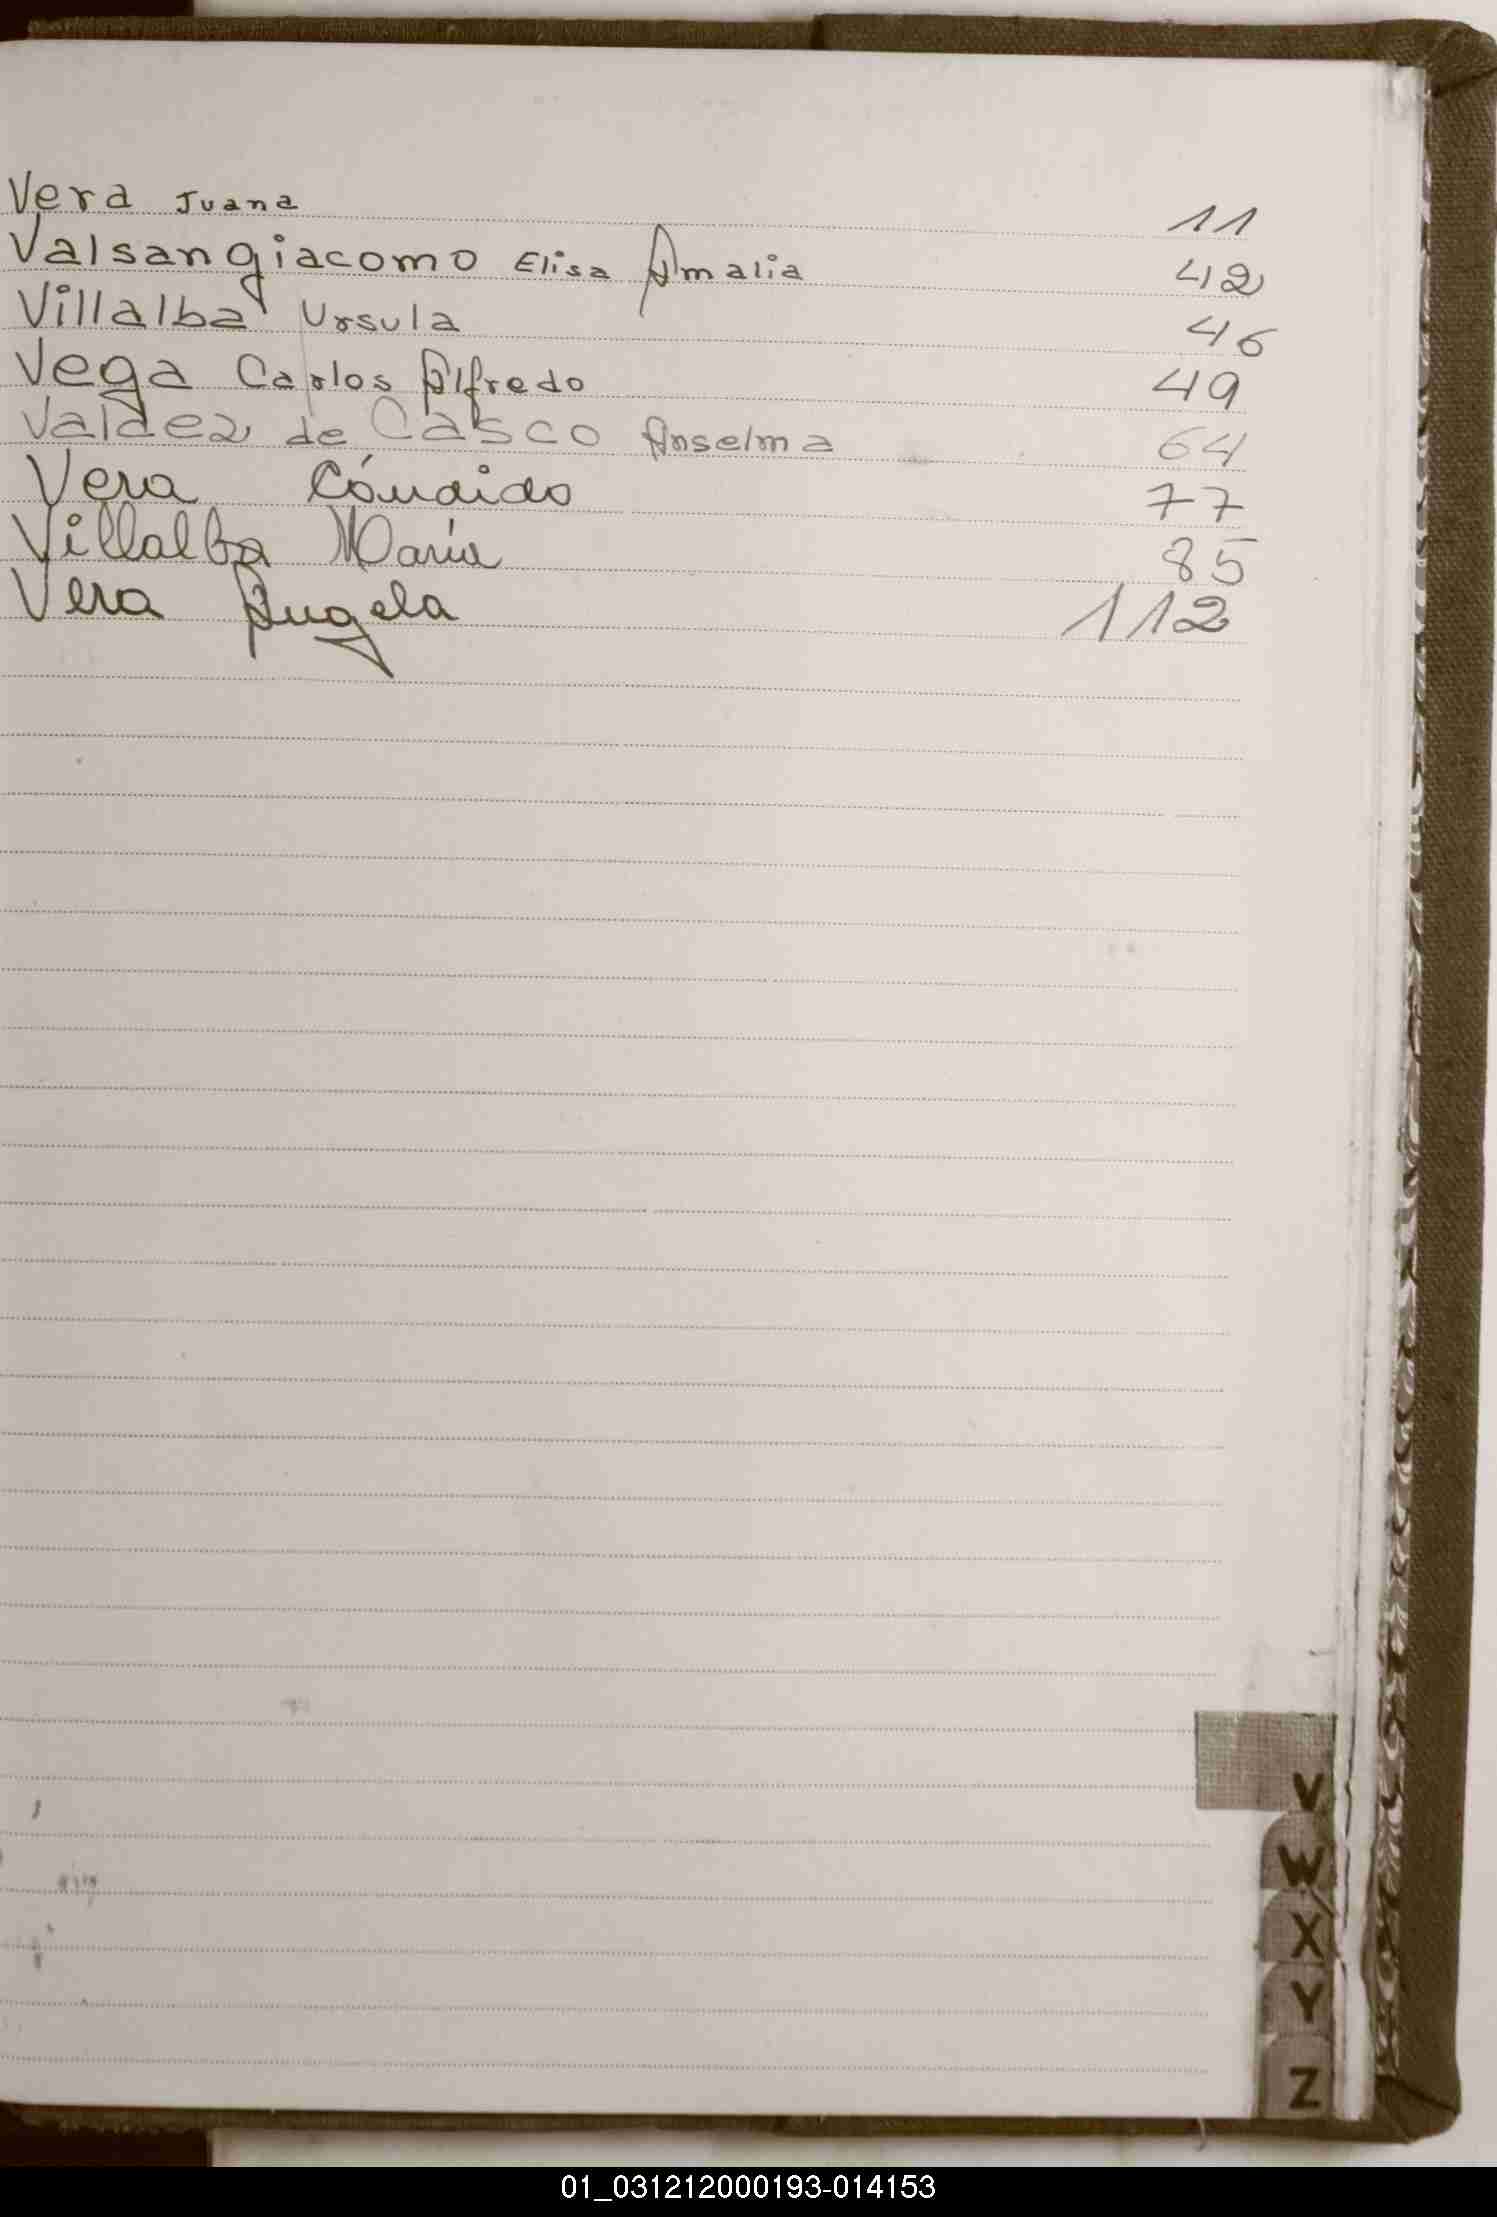 Vera Juana 11
Valsangiacomo Elisa Amalia 42
Villalba Ursula 46
Vega Carlos Alfredo 49
Valdez de Casco Anselma 64
Vera Cándido 77
Villalba María 85
Vera Angela 112
V
W
X
Y
Z
01_031212000193-014153